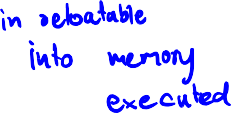 in relocatable
into memory
executed